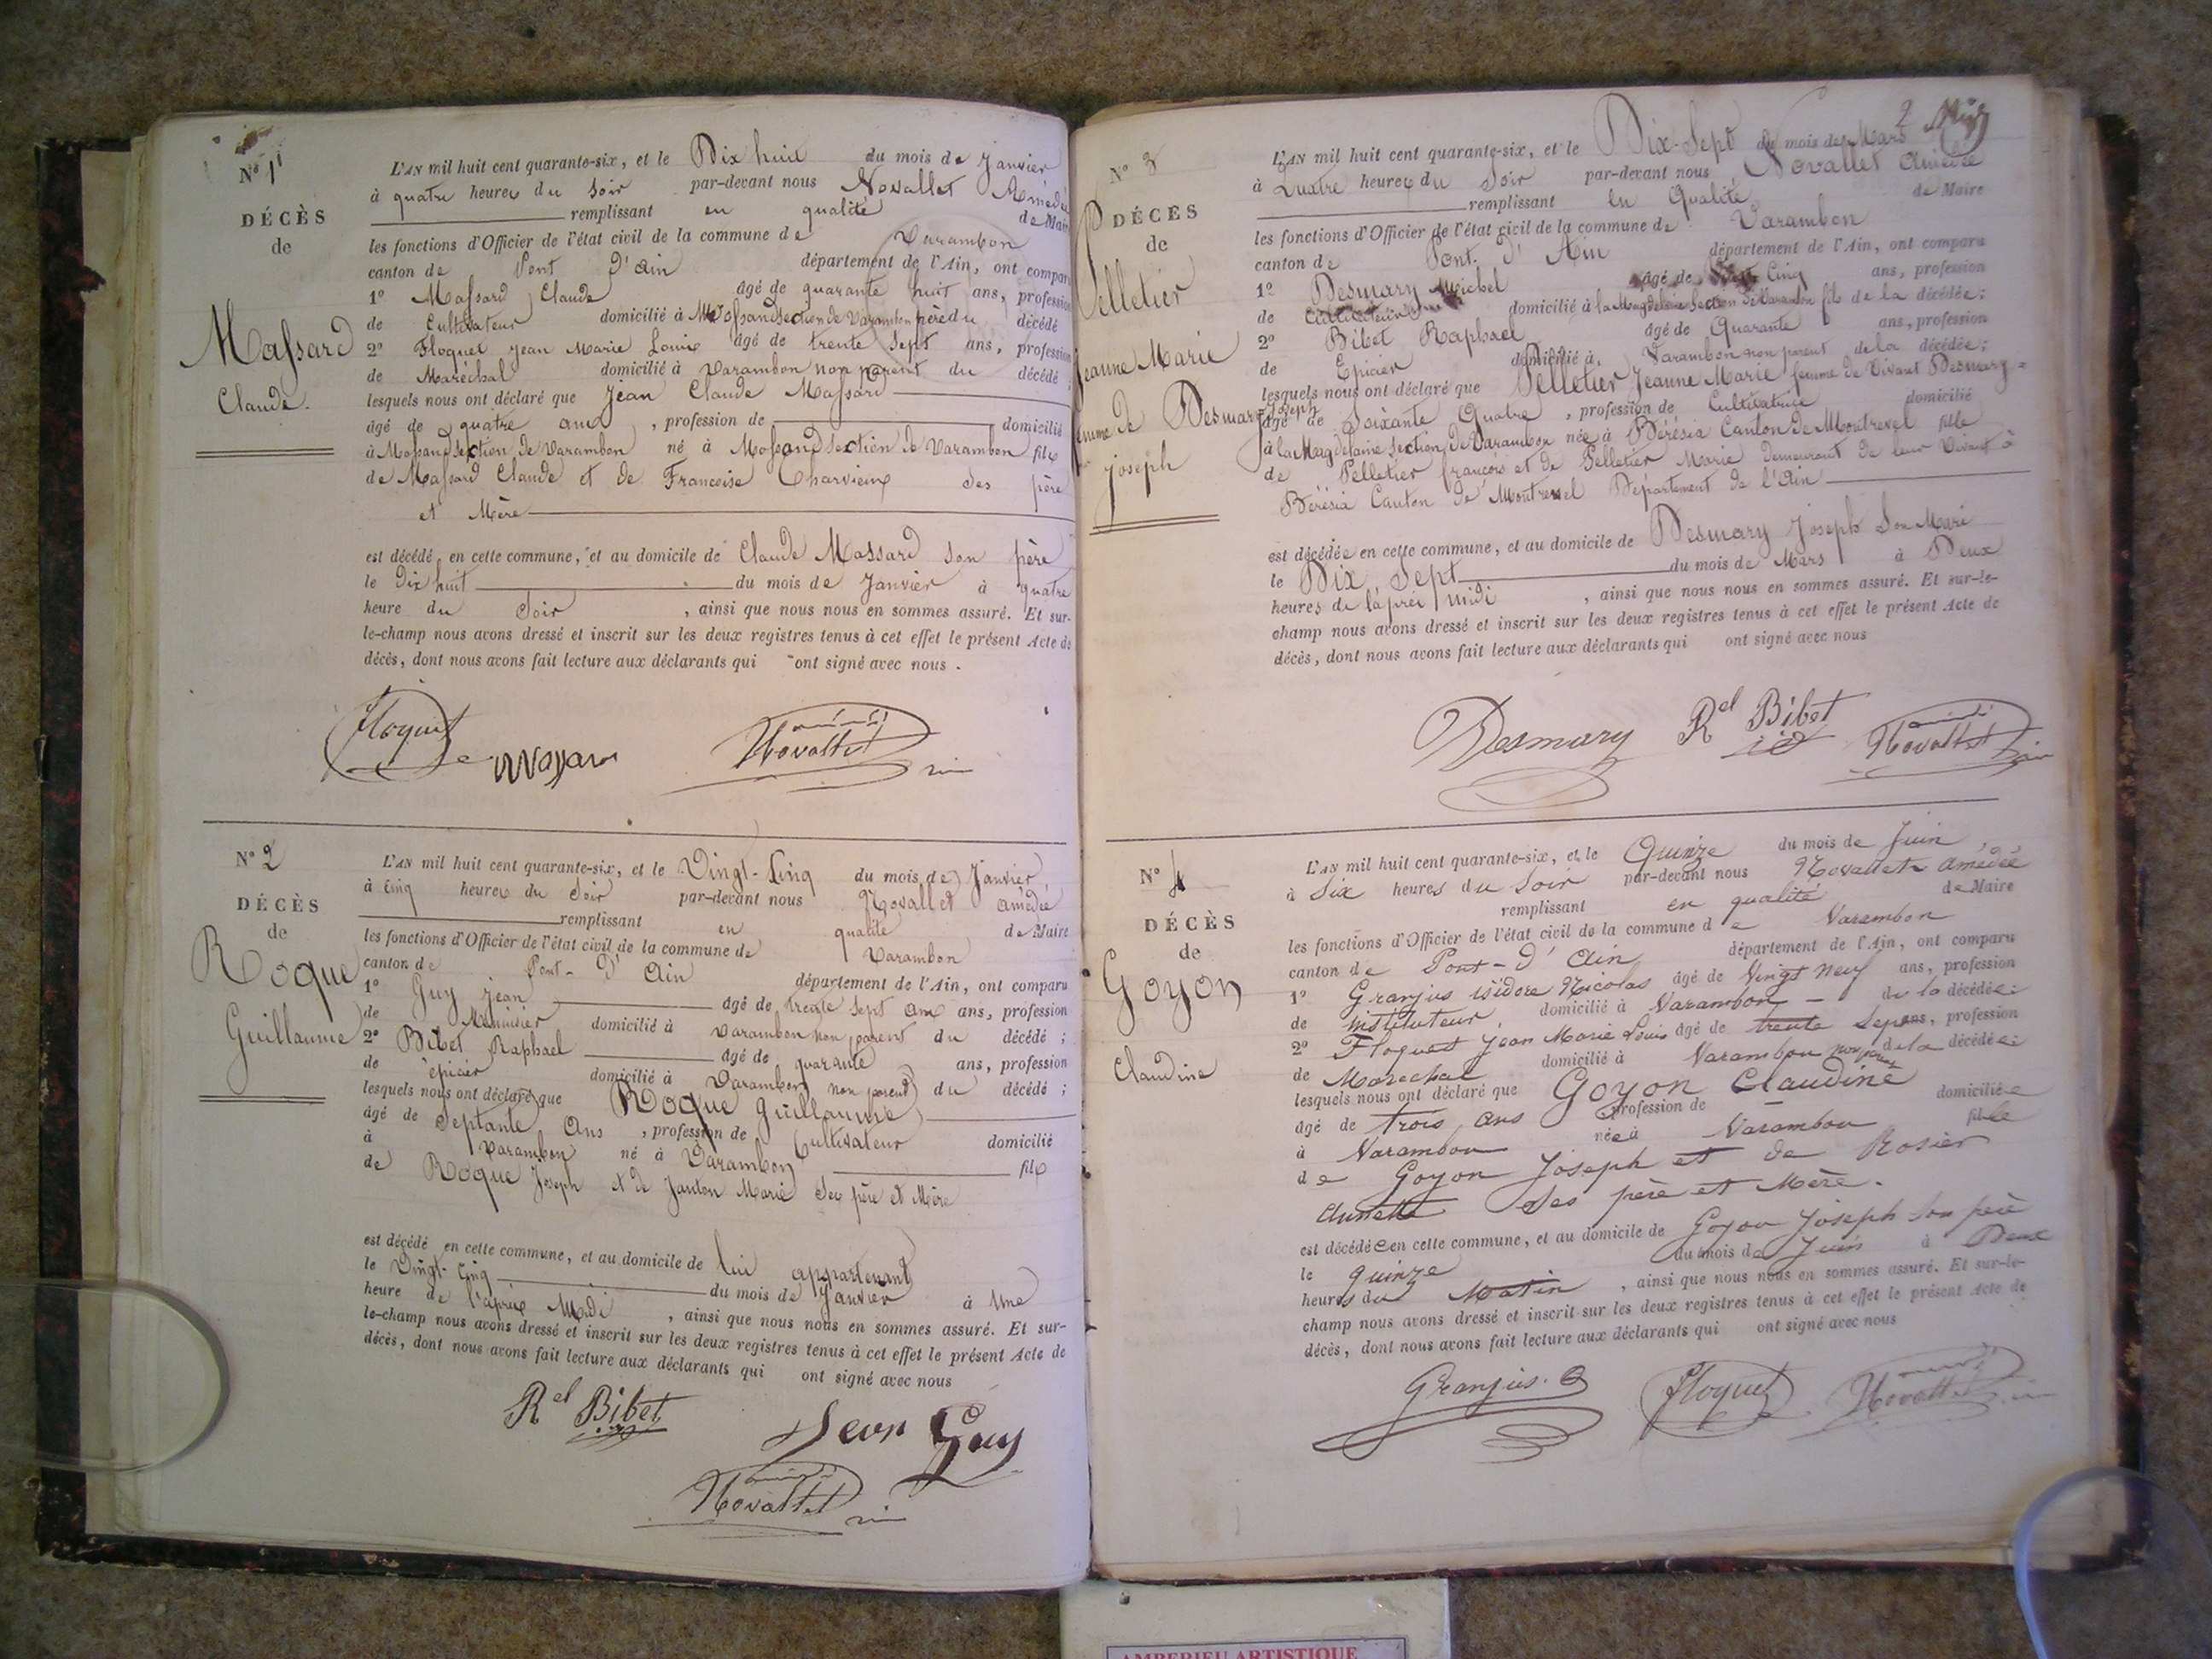 N° 1
DÉCÈS
de
Massard
Claude.
L'AN mil huit cent quarante-six, et le Dix huit du mois de Janvier
à quatre heures du Soir par-devant nous Novallet Amédée
remplissant en qualité de Maire
les fonctions d'Officier de l'état civil de la commune de Varambon
canton de Pont d'ain département de l'Ain, ont comparu
1° Massard Claude âgé de quarante huit ans, profession
de Cultivateur domicilié à Section de Varambon père du décédé
2° Floquet Jean Marie Louis âgé de trente Sept ans, profession
de Maréchal domicilié à Varambon non parent du décédé ;
lesquels nous ont déclaré que Jean Claude Massard
âgé de quatre ans , profession de domicilié
à Section de Varambon né à Section de Varambon fils
de Massard Claude et de Francoise Charvieux ses père
et Mère
est décédé en cette commune, et au domicile de Claude Massard son père
le Dix huit du mois de Janvier à quatre
heure du Soir , ainsi que nous nous en sommes assuré. Et sur-
le-champ nous avons dressé et inscrit sur les deux registres tenus à cet effet le présent Acte de
décès, dont nous avons fait lecture aux déclarants qui ont signé avec nous .
Floquet Novallet
N° 2
DÉCÈS
de
Roque
Guillaume
L'AN mil huit cent quarante-six, et le Vingt-Cinq du mois de Janvier
à cinq heures du Soir par-devant nous Novallet amédée
remplissant en qualité de Maire
les fonctions d'Officier de l'état civil de la commune de Varambon
canton de Pont-d'ain département de l'Ain, ont comparu
1° Guy Jean âgé de trente sept ans ans, profession
de domicilié à Varambon non parent du décédé ;
2° Bibet Raphael âgé de quarante ans, profession
de épicier domicilié à Varambon non parent du décédé ;
lesquels nous ont déclaré que Roque Guillaume
âgé de Septante ans , profession de Cultivateur domicilié
à Varambon né à Varambon fils
de Roque Joseph et de Janton Marie Ses père et Mère
est décédé en cette commune, et au domicile de lui appartenant
le Vingt-cinq du mois de Janvier à Une
heure de l'après Midi , ainsi que nous nous en sommes assuré. Et sur-
le-champ nous avons dressé et inscrit sur les deux registres tenus à cet effet le présent Acte de
décès, dont nous avons fait lecture aux déclarants qui ont signé avec nous
Rel Bibet Jean Guy
Novallet
2
N° 3
DÉCÈS
de
Pelletier
Jeanne Marie
femme de Desmary
joseph
L'AN mil huit cent quarante-six, et le Dix-Sept du mois de Mars
à Quatre heures du Soir par-devant nous Novallet Amédée
remplissant en Qualité de Maire
les fonctions d'Officier de l'état civil de la commune de Varambon
canton de Pont-d'Ain département de l'Ain, ont comparu
1° Desmary Michel âgé de Cinq ans, profession
de Cultivateur domicilié à la Magdelaine Section de Varambon fils de la décédée ;
2° Bibet Raphael âgé de Quarante ans, profession
de Epicier domicilié à Varambon non parent de la décédée ;
lesquels nous ont déclaré que Pelletier Jeanne Marie femme de Vivant Desmary
Joseph âgé de Soixante Quatre , profession de Cultivatrice domicilié
à la Magdelaine Section de Varambon née à Bérésia Canton de Montrevel fille
de Pelletier françois et de Pelletier Marie demeurant de leur Vivant à
Bérésia Canton de Montrevel Département de l'Ain
est décédée en cette commune, et au domicile de Desmary Joseph Son Mari
le Dix Sept du mois de Mars à Deux
heures de l'après midi , ainsi que nous nous en sommes assuré. Et sur-le-
champ nous avons dressé et inscrit sur les deux registres tenus à cet effet le présent Acte de
décès, dont nous avons fait lecture aux déclarants qui ont signé avec nous
Desmary Rel Bibet Novallet
N° 4
DÉCÈS
de
Goyon
Claudine
L'AN mil huit cent quarante-six, et le Quinze du mois de Juin
à Six heures du Soir par-devant nous Novallet amédée
remplissant en qualité de Maire
les fonctions d'Officier de l'état civil de la commune de Varambon
canton de Pont-d'ain département de l'Ain, ont comparu
1° Granjus isidore Nicolas âgé de Vingt neuf ans, profession
de instituteur domicilié à Varambon de la décédée ;
2° Floquet Jean Marie Louis âgé de trente Sept ans, profession
de Marechal domicilié à Varambon non parent de la décédée ;
lesquels nous ont déclaré que Goyon Claudine
âgé de trois ans profession de domiciliée
à Varambon née à Varambon fille
de Goyon Joseph et de Rosier
Annette Ses père et Mère.
est décédée en cette commune, et au domicile de Goyon Joseph Son père
le quinze du mois de Juin à Deux
heures du Matin , ainsi que nous nous en sommes assuré. Et sur-le-
champ nous avons dressé et inscrit sur les deux registres tenus à cet effet le présent Acte de
décès, dont nous avons fait lecture aux déclarants qui ont signé avec nous
Granjus Floquet Novallet
AMBERIEU ARTISTIQUE